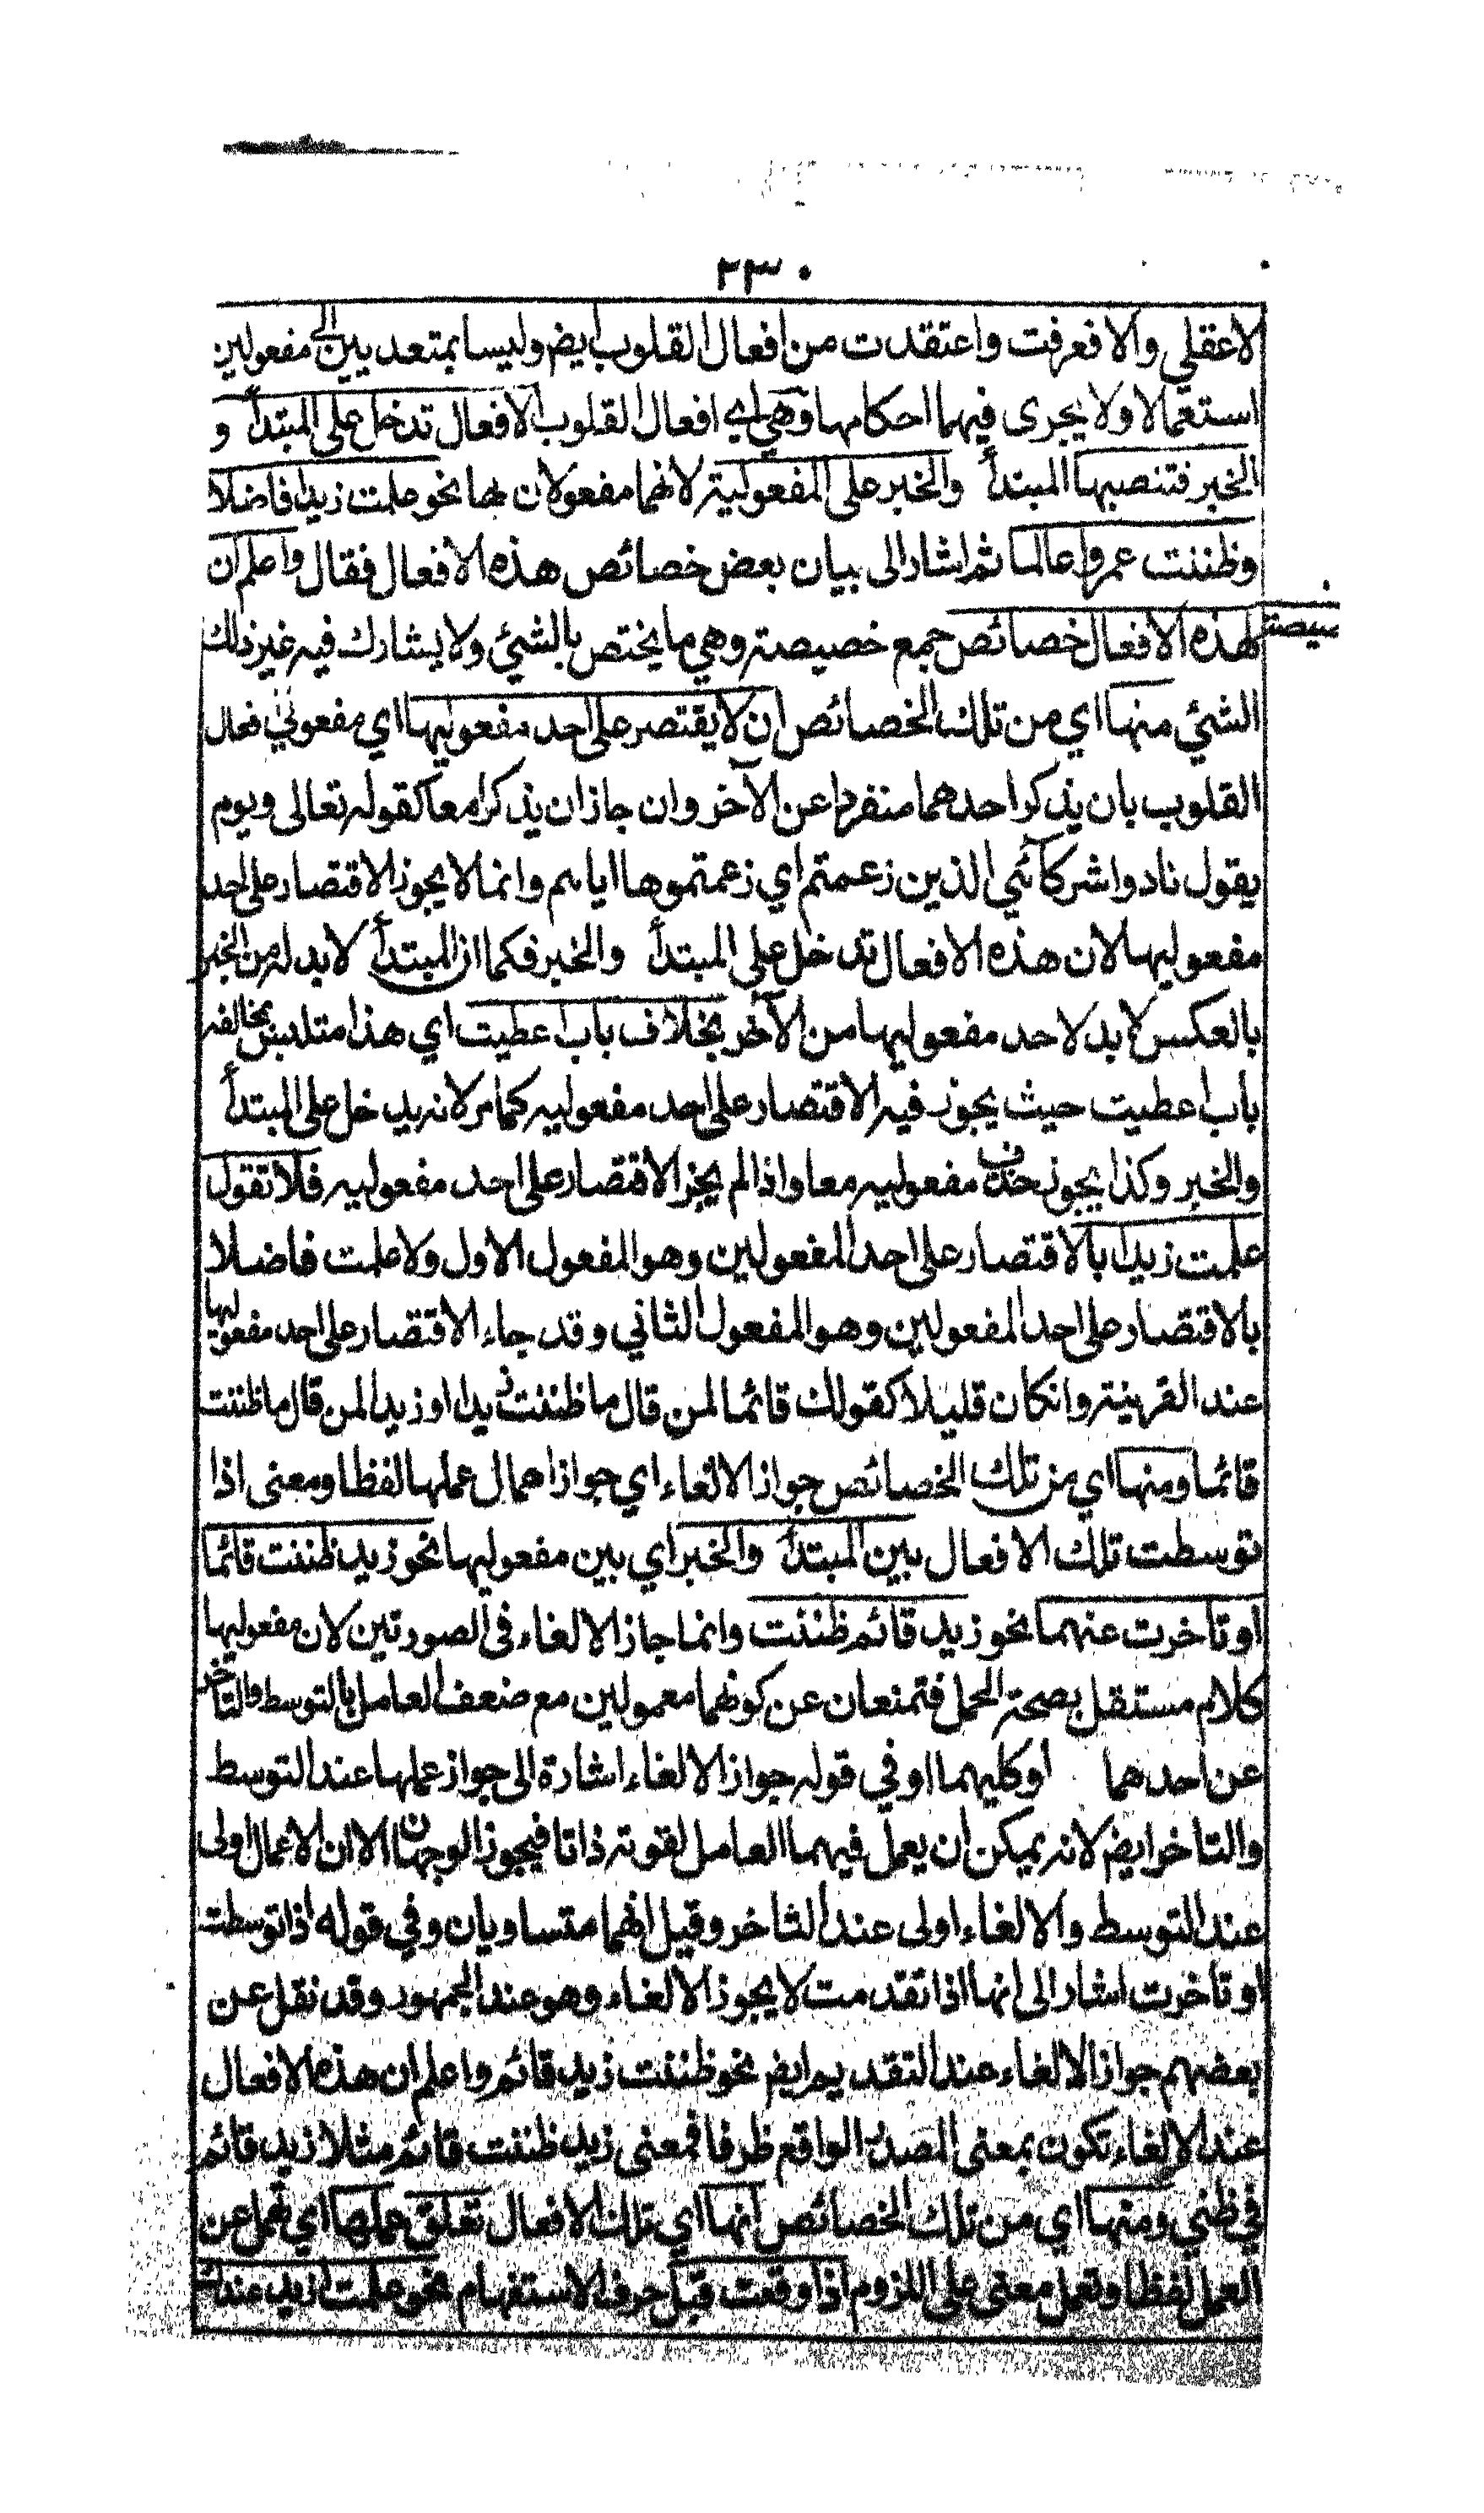 ٢٣٠
لا عقلي والا فعرفت واعتقدت من افعال القلوب ايض وليسا بمتعديين الى مفعولين
استعمالا ولا يجرى فيهما احكامها وهي اي افعال القلوب الافعال تدخل على المبتدأ و
الخبر فتنصبها المبتدأ والخبر على المفعولية لانهما مفعولان لها نحو علمت زيدا فاضلا
وظننت عمروا عالما ثم اشار الى بيان بعض خصائص هذه الافعال فقال واعلم ان
لهذه الافعال خصائص جمع خصيصة وهي ما يختص بالشئي ولا يشارك فيه غير ذلك
الشئي منها اي من تلك الخصائص ان لا يقتصر على احد مفعوليها اي مفعولي افعال
القلوب بان يذكر احدهما منفردا عن الآخر وان جاز ان يذكرا معا كقوله تعالى ويوم
يقول نادوا شركآئي الذين زعمتم اي زعمتموها اياهم وانما لا يجوز الاقتصار على احد
مفعوليها لان هذه الافعال تدخل على المبتدأ والخبر فكما ان المبتدأ لا بد له من الخبر
بالعكس لا بد لاحد مفعوليها من الآخر بخلاف باب اعطيت اي هذا متلبس بمخالفة
باب اعطيت حيث يجوز فيه الاقتصار على احد مفعوليه كما مر لانه يدخل على المبتدأ
والخبر وكذا يجوز حذف مفعوليه معا واذا لم يجز الاقتصار على احد مفعوليه فلا تقول
علمت زيدا بالاقتصار على احد المفعولين وهو المفعول الاول ولا علمت فاضلا
بالاقتصار على احد المفعولين وهو المفعول الثاني وقد جاء الاقتصار على احد مفعوليها
عند القرينة وانكان قليلا كقولك قائما لمن قال ما ظننت زيدا او زيدا لمن قال ما ظننت
قائما ومنها اي من تلك الخصائص جواز الالغاء اي جواز اهمال عملها لفظا ومعنى اذا
توسطت تلك الافعال بين المبتدأ والخبر اي بين مفعوليها نحو زيد ظننت قائما
او تاخرت عنهما نحو زيد قائم ظننت وانما جاز الالغاء فى الصورتين لان مفعوليها
كلام مستقل بصحة الحمل فتمنعان عن كونهما معمولين مع ضعف العامل بالتوسط والتاخر
عن احدهما او كليهما او في قوله جواز الالغاء اشارة الى جواز عملها عند التوسط
والتاخر ايض لانه يمكن ان يعمل فيهما العامل لقوته ذاتا فيجوز الوجهان الا ان الاعمال اولى
عند التوسط والالغاء اولى عند التاخر وقيل انهما متساويان وفي قوله اذا توسطت
او تاخرت اشار الى انها اذا تقدمت لا يجوز الالغاء وهو عند الجمهور وقد نقل عن
بعضهم جواز الالغاء عند التقديم ايض نحو ظننت زيد قائم واعلم ان هذه الافعال
عند الالغاء تكون بمعنى المصدر الواقع ظرفا فمعنى زيد ظننت قائم مثلا زيد قائم
في ظني ومنها اي من تلك الخصائص انها اي تلك الافعال تعلق عملها اي تهمل عن
العمل لفظا وتعمل معنى على اللزوم اذا وقعت قبل حرف الاستفهام نحو علمت ازيد عندك